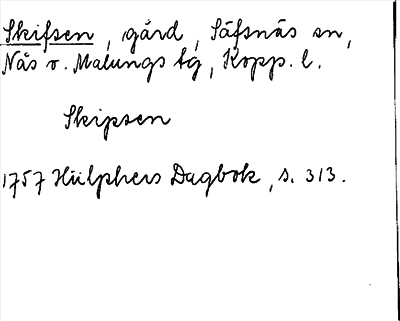 Skifsen, gård, Säfsnäs sn,
Nås o. Malungs tg, Kopp. l.
Skipsen
1757 Hülphers Dagbok, s. 313.